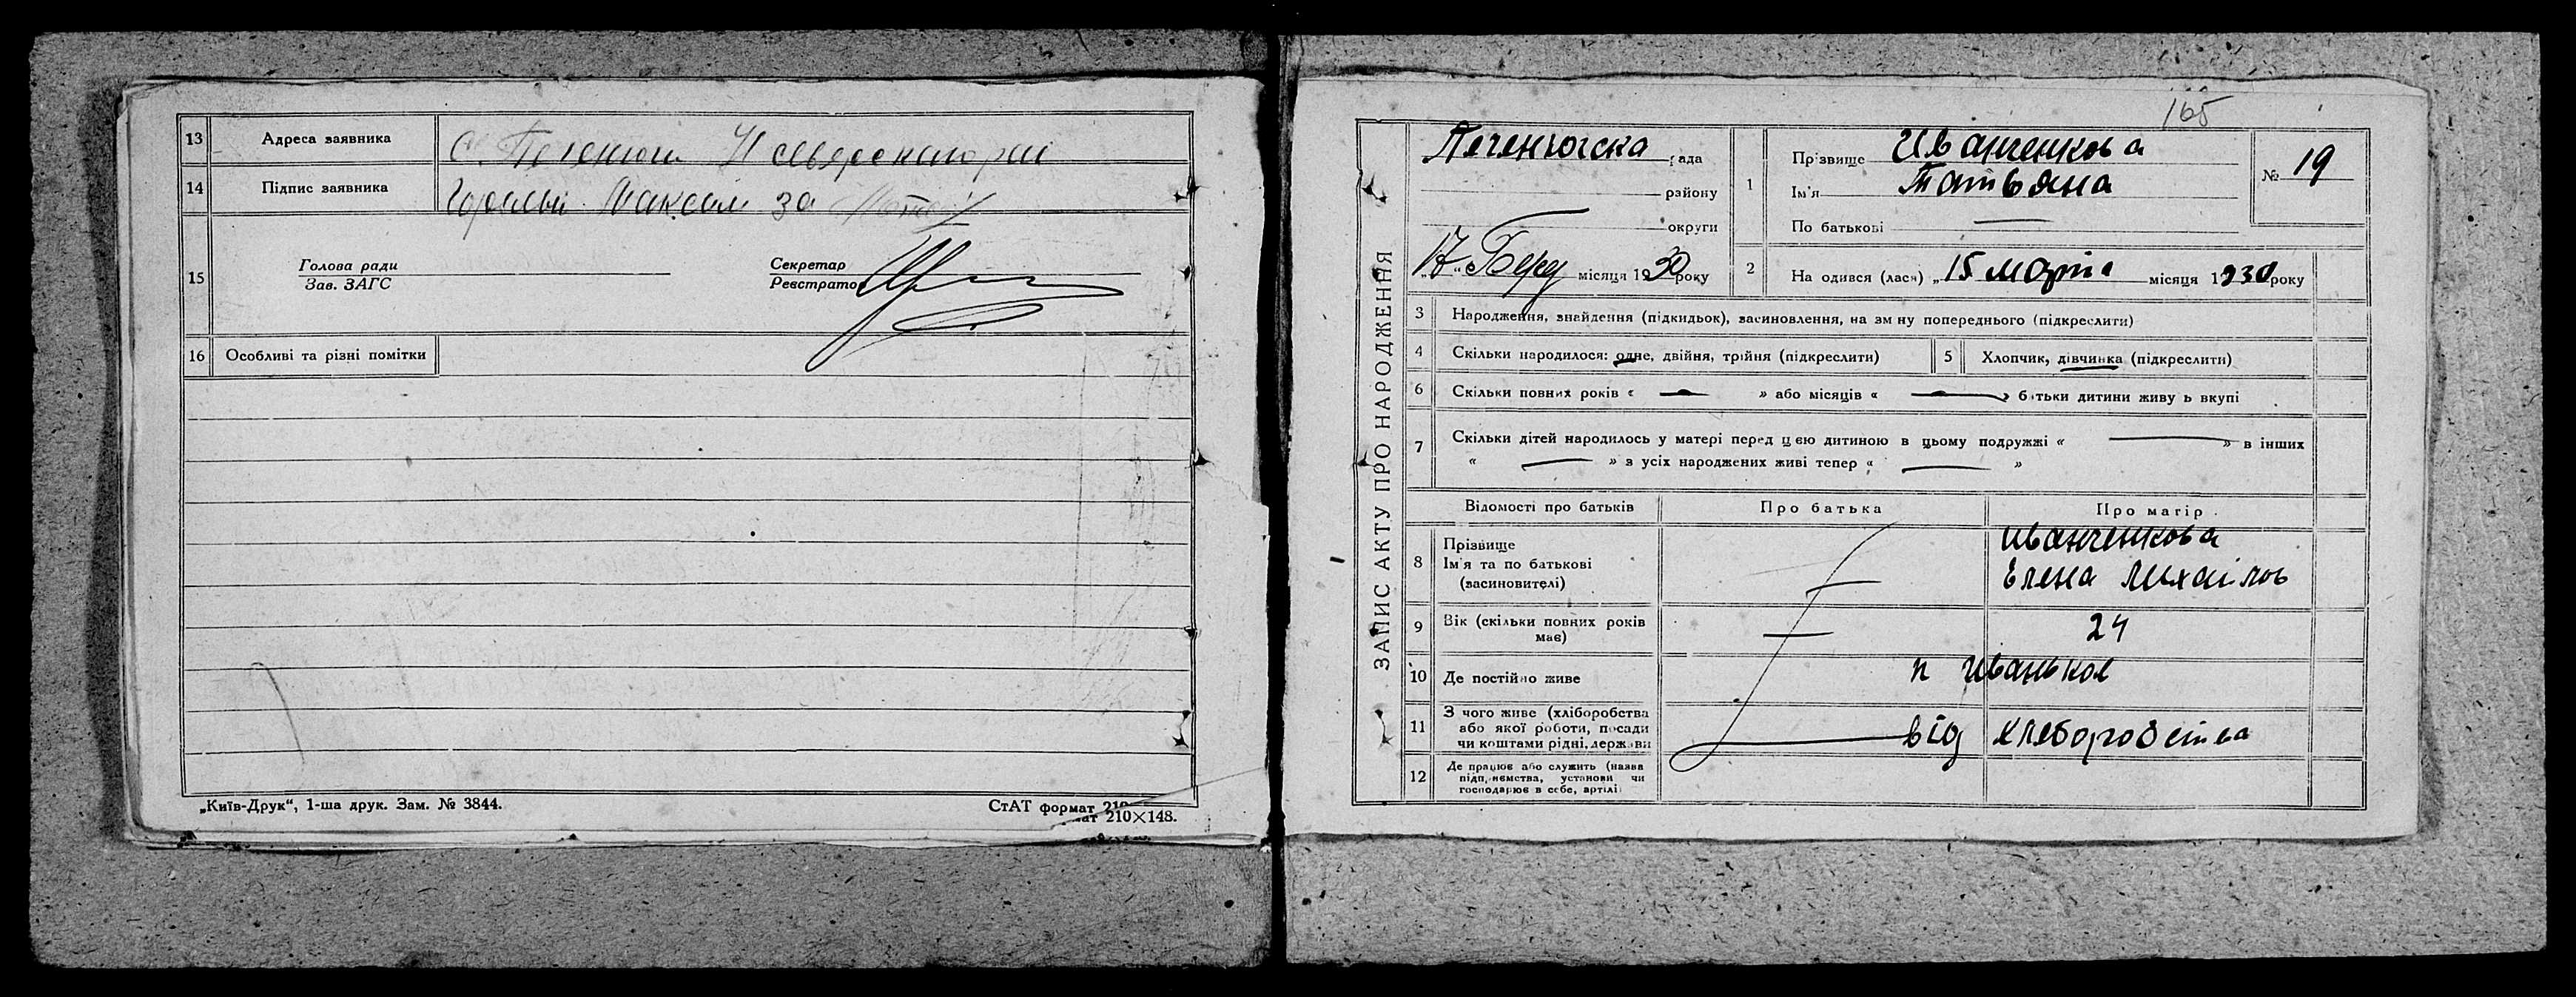 13 Адреса заявника С. Печенюги Н северскаго рай
14 Підпис заявника Максим за
15 Голова ради Секретар
Зав. ЗАГС Реєстратор
16 Особливі та різні помітки
„Київ-Друк“, 1-ша друк. Зам. № 3844.
СтАТ формат 210
мат 210×148.
165
ЗАПИС АКТУ ПРО НАРОДЖЕННЯ
Печенюгска рада
району
округи
„17“ Бер місяця 1930 року
1 Прізвище Иванченкова
Ім'я Татьяна
По батькові —
№ 19
2 На одився (лася) „15 марта місяця 1930 року
3 Народження, знайдення (підкидьок), засиновлення, на зм ну попереднього (підкреслити)
4 Скільки народилося: одне, двійня, трійня (підкреслити)
5 Хлопчик, дівчинка (підкреслити)
6 Скільки повних років « — » або місяців « — » батьки дитини живу ь вкупі
7 Скільки дітей народилось у матері перед цією дитиною в цьому подружжі « — » в інших
« — » з усіх народжених живі тепер « — »
Відомості про батьків Про батька Про матір
8 Прізвище
Ім'я та по батькові
(засиновителі)
Иванченкова
Елена Михайлов
9 Вік (скільки повних років
має)
— 24
10 Де постійно живе п Иваньков
11 З чого живе (хліборобства
або якої роботи, посади
чи коштами рідні, держави
від хлеборобства
12 Де працює або служить (назва
підприємства, установи чи
господарює в себе, артілі